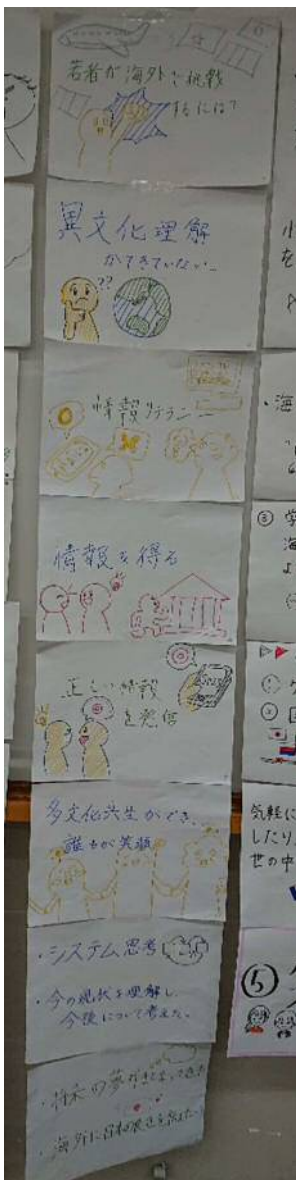 若者が海外で挑戦
するには？
異文化理解
ができていない
??
情報リテラシー
情報を得る
正しい情報
を発信
多文化共生ができ、
誰もが笑顔
・システム思考
・今の現状を理解し、
今後について考えた。
・将来の夢が
・海外に日本の良さを伝えたい
小
を
・海
③ 学
海
よ
①
②
気軽に
したり
世の中
⑤